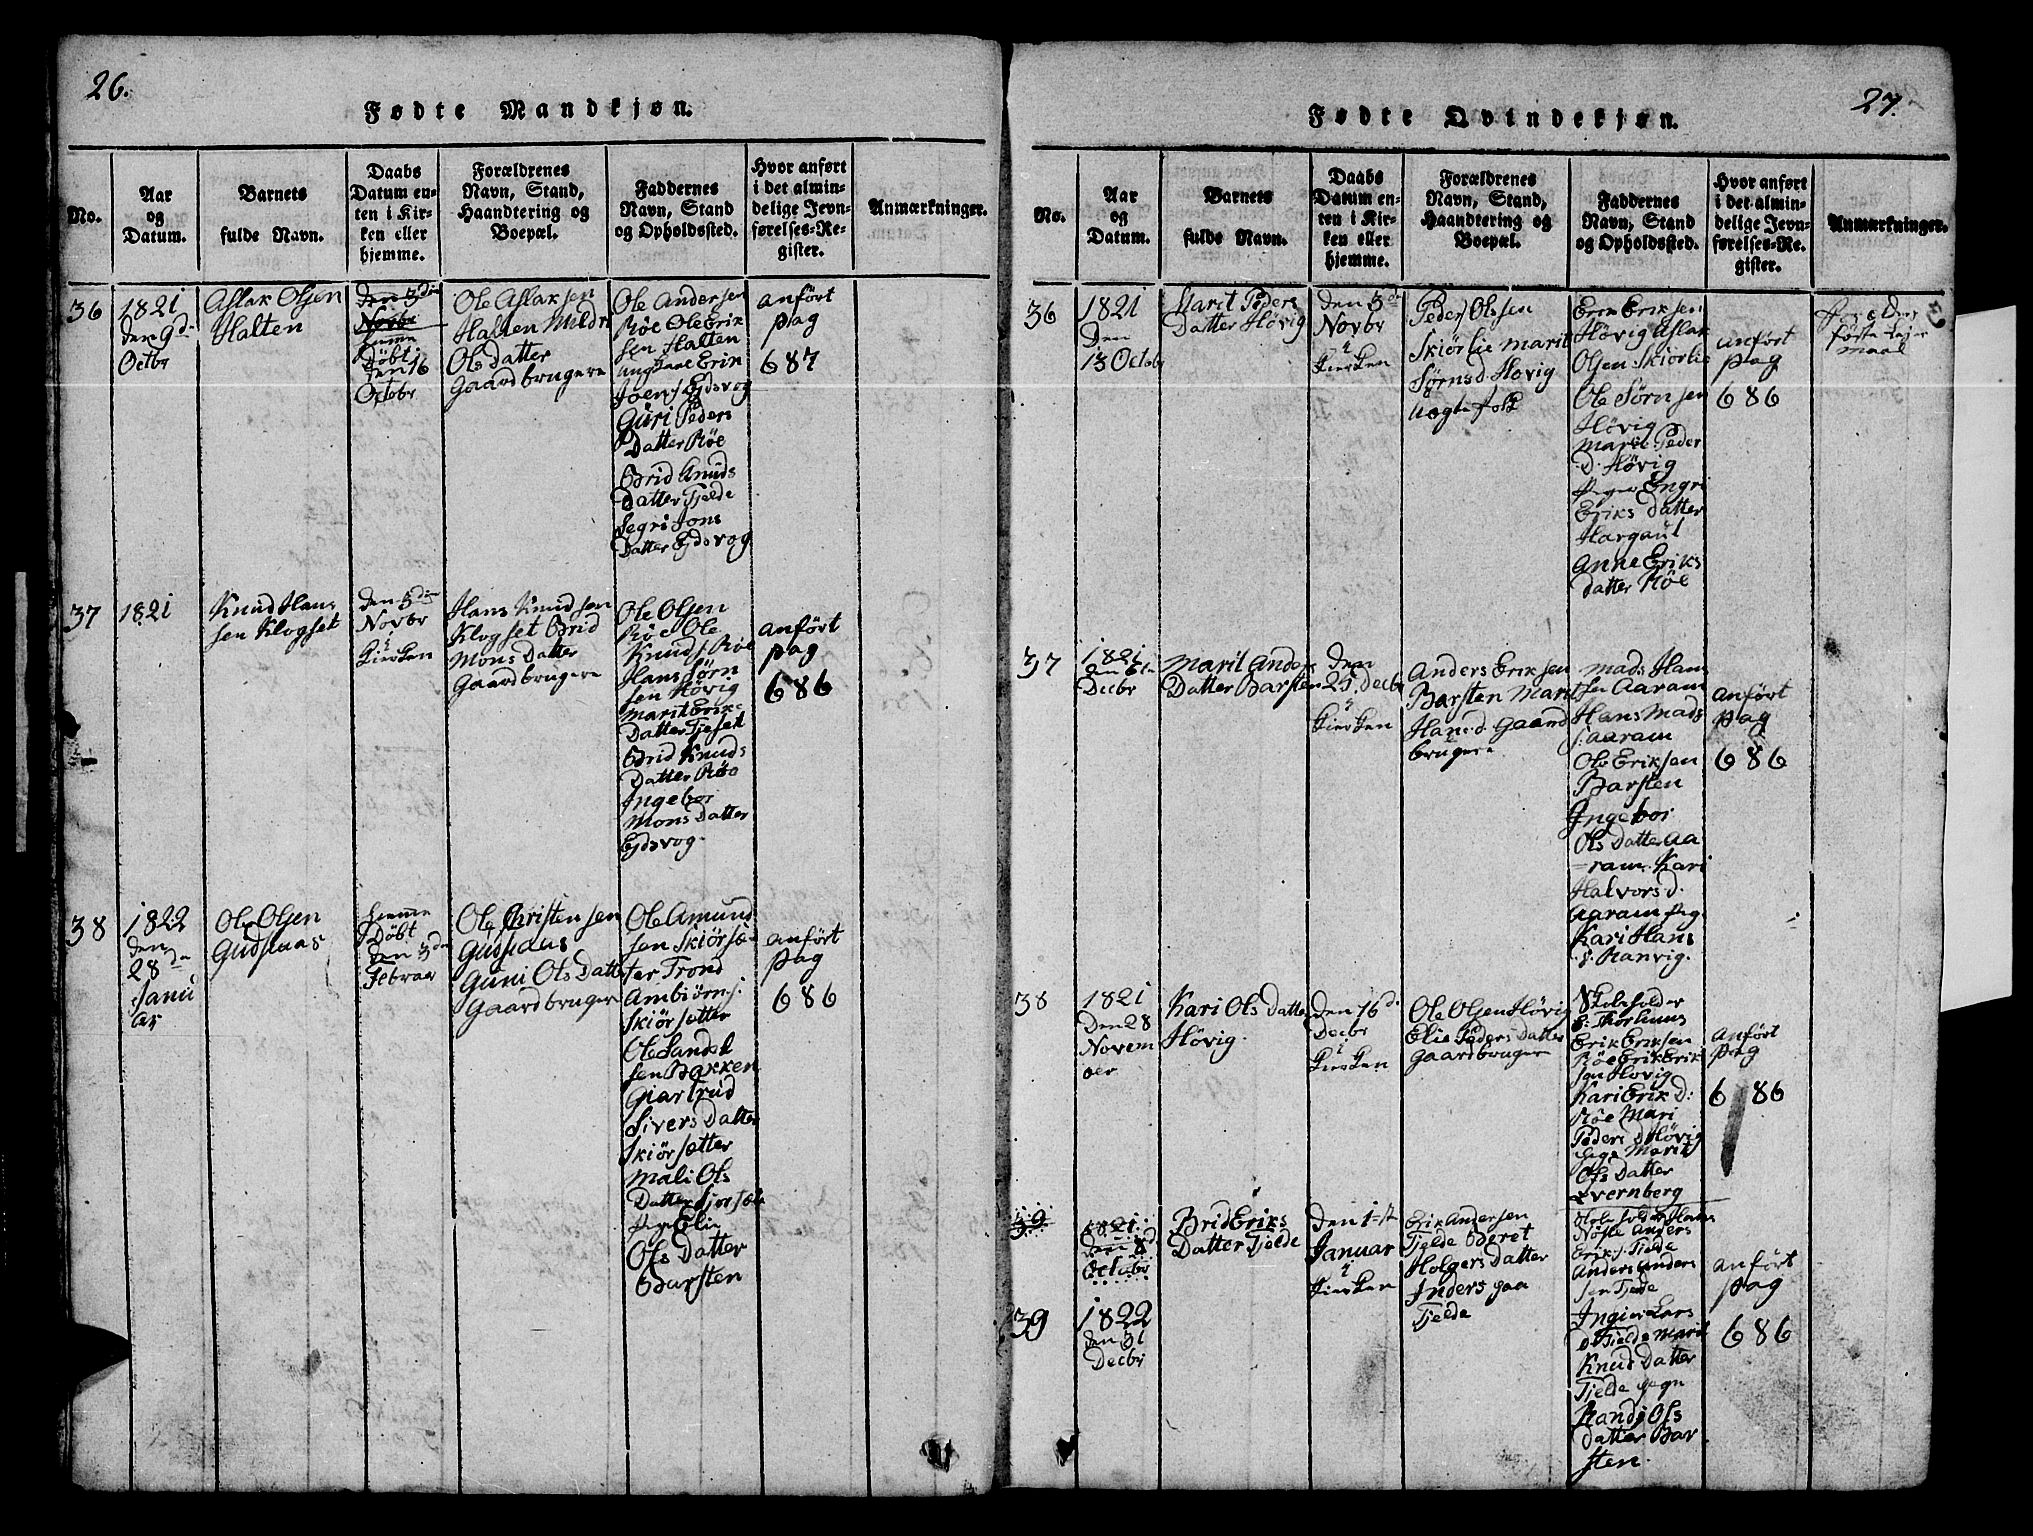 26.
Fødte Mandkjøn.
No.
Aar
og
Datum.
Barnets
fulde Navn.
Daabs
Datum en-
ten i Kir-
ken eller
hjemme.
Forældrenes
Navn, Stand,
Haandtering og
Boepæl.
Faddernes
Navn, Stand
og Opholdssted.
Hvor anført
i det almin-
delige Jevn-
førelses-Re-
gister.
Anmærkninger.
36
1821
den 9d.
Octbr
Aslak Olsen
Halten
den 3die
Novbr
hiemme
Döbt
den 16
Octobr
Ole Aslaksen
Halten Mildri
Ols Datter
Gaardbrugere
Ole Andersen
Röe Ole Erik
sen Halten
Erik
Joens. Ejdsvog
Guri Peders
Datter Röe
Brid Knuds
Datter Tjelde
Segri Jons
Datter Ejdsvog
anfört
pag
687
37
1821
Knud Hans
sen Klogset
den 3die
Novbr
i
Kierken
Hans Knudsen
Klogset Brid
Mons Datter
Gaardbrugere
Ole Olsen
Röe Ole
Knuds. Röe
Hans Sörn
sen Hövig
Marit Erik-
Datter Tjeset
Brid Knuds
Datter Röe
Ingebor
Mons Datter
Ejdsvog.
anfört
pag
686
38
1822
den
28de
Janu
ar
Ole Olsen
Gudsuaas
hiemme
Döbt
den 3die
Februar
Ole Christensen
Gudsuaas
Guni Ols Datter
Gaardbruger
Ole Amund
sen Skiörsæ-
ter Trond
Ambiörns.
Skiörsætter
Ole Sandek
sen Bakken
Giartrud
Sivers Datter
Skiörsætter
Mali Ols
Datter Sjorsæt
Pige Elie
Ols Datter
Barsten
anfört
Pag
686
27.
Fødte Qvindekjøn.
No.
Aar
og
Datum.
Barnets
fulde Navn.
Daabs
Datum en-
ten i Kir-
ken eller
hjemme.
Forældrenes
Navn, Stand,
Haandtering og
Boepæl.
Faddernes
Navn, Stand
og Opholdssted.
Hvor anført
i det almin-
delige Jevn-
førelses-Re-
gister.
Anmærkninger.
36
1821
Den
13 Octobr
Marit Peders
Datter Hövig
den 3die
Novbr
i
Kierken
Peder Olssen
Skiörlie Marit
Sörnsd. Hövig
Uegte folk
Erik Eriksen
Hövig Aslak
Olsen Skiörlie
Ole Sörnsen
Hövig
Marie Peder
D. Hövig
Pigen Engri
Eriks Datter
Hargaut
Anne Eriks
datter Röe
anfört
pag
686
förste Leier
maal
37
1821
Decbr
Marit Anders
Datter Barsten
den
25. Decbr
i
Kierken
Anders Eriksen
Barsten Marit
Hans d. Gaard
brugere
Mads Hans
sen Aaram
Hans Mads
s. Aaram
Ole Eriksen
Barsten
Ingeboi
Ols Datter Aa
ram. Kari
Halvors d.
Aaram Pig
Kari Hans
d. Ranvig.
anfört
pag
686
38
1821
Den 28
Novem
ber
Kari Ols Datter
Hövig.
Den 16d.
Decbr
i
Kierken
Ole Olsen Hövig
Elie Peders Datter
Gaardbrugere
Skoleholder
Erik Eriksen
Röe Erik Erik
sen Hövig
Kari Erik D:
Röe Mari
Peders d Hövig
Pige Marit
Ols Datter
Qvernberg
anfört
Pag
686
39
1821
den 8d
Octobr
Brid Eriks
Datter Tjelde
Den 1ste
Januar
i
Kierken
Erik Andersen
Tjelde Beret
Holgers Datter
Inders paa
Tjelde
Skoleholder Hans
Nöste Anders
Erik s. Tjelde
Anders Anders
sen Tjelde
Ingier Lars
D. Tjelde Marit
Knud Datter
Tjelde Pign
Randi Ols
datter Bar
sten.
anfört
Pag
686
39
1822
den 31
Decbr